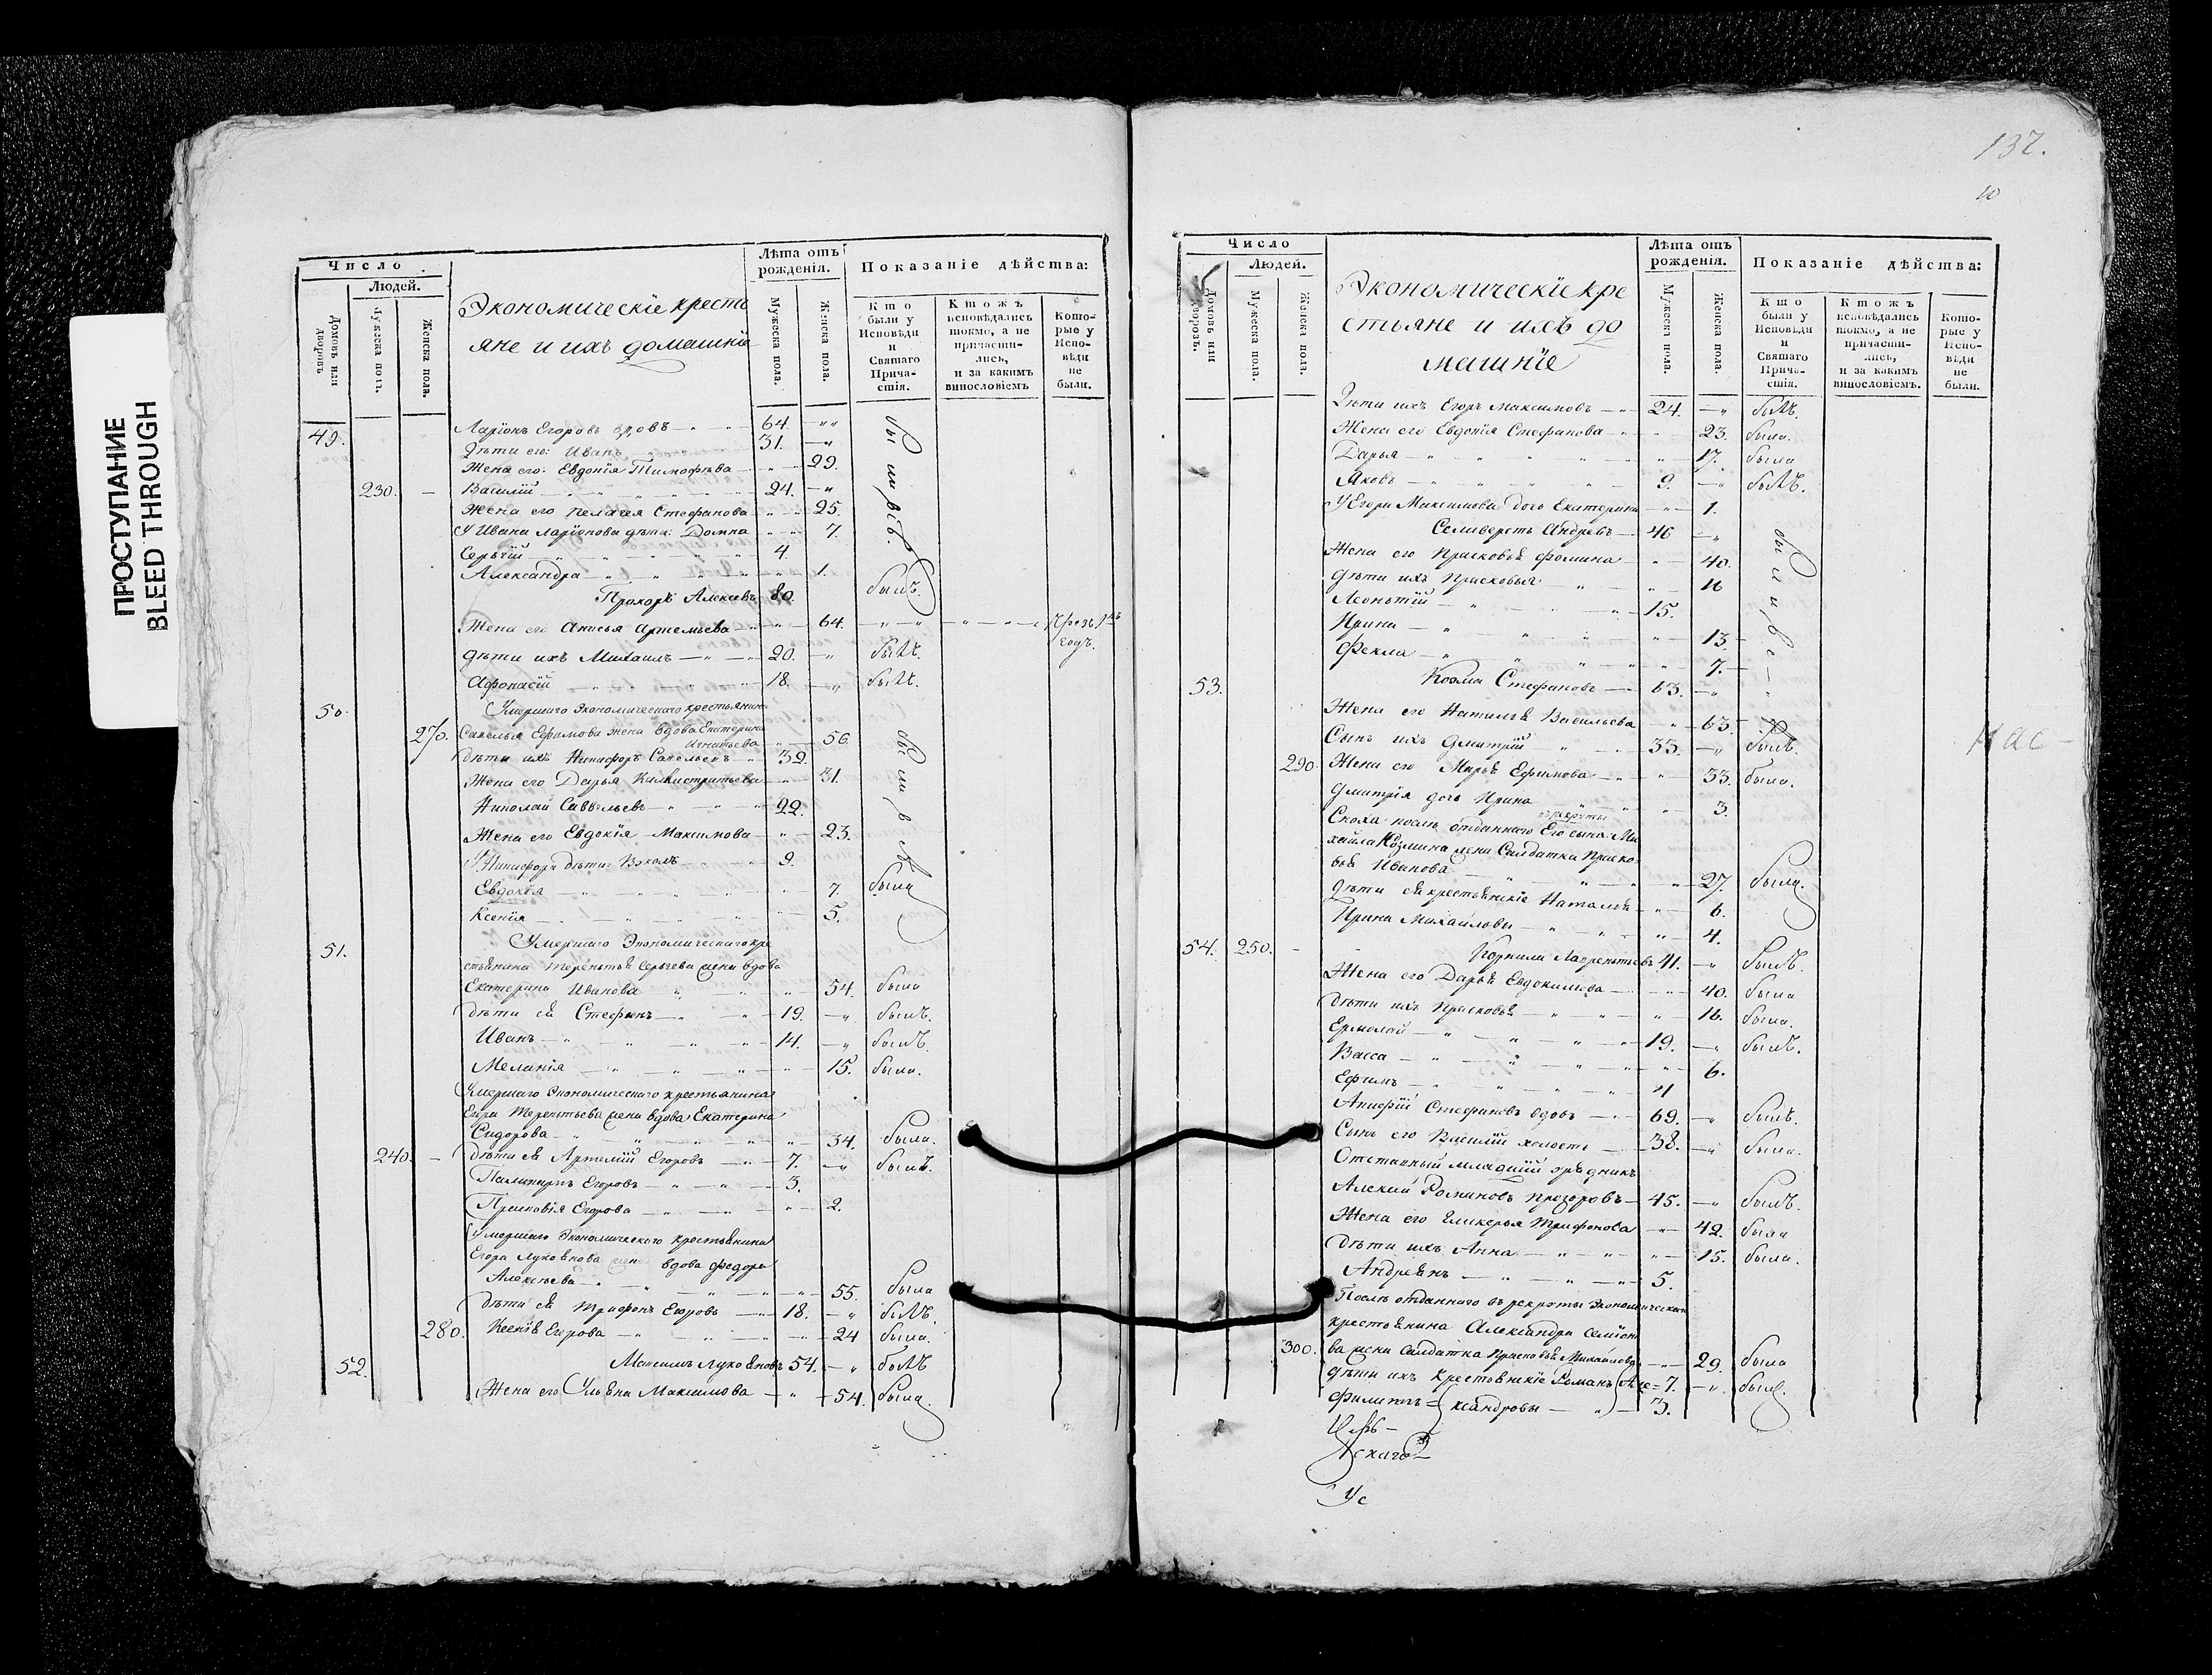 ПРОСТУПАНИЕ
BLEED THROUGH
Число
Людей.
Домовъ или дворовъ.
Мужеска пола.
Женска пола.
Экономическіе кресть
яне и ихъ домашніе
Лѣта отъ рожденія.
Мужеска пола.
Женска пола.
Показаніе дѣйства:
Кто были у Исповѣди и Святаго Причастія.
Ктожъ исповѣдались токмо, а не причастились, и за какимъ винословіемъ
Которые у Исповѣди не были.
49. Ларіонъ Егоровъ вдовъ 64.
Дѣти его: Иванъ 31.
Жена его: Евдокія Тимофѣева 29.
230. Василій 24.
Жена его Пелагея Стефанова 25.
У Ивана Ларіонова дѣти: Домна 7.
Сергѣй 4
Александра 1.
Прохоръ Алексѣевъ 80. былъ.
Жена его Анисья Артемьева 64.
годъ.
Дѣти ихъ Михаилъ 20. былъ.
Афонасій 18. былъ.
50. Умершаго Экономическаго крестьянина
270. Савелья Ефимова жена вдова Екатерина
Игнатьева 56
Дѣти ихъ Никифоръ Савельевъ 32.
Жена его Дарья Калистратьева 31.
Николай Савельевъ 22.
Жена его Евдокія Максимова 23.
У Никифора дѣти: 9.
Евдокія 7. была
Ксенія 5.
51. Умершаго Экономическаго кре
стьянина Терентья Сергѣева жена вдова
Екатерина Иванова 54. была
Дѣти ея Стефанъ 19. былъ.
Иванъ 14. былъ.
Меланія 15. была.
Умершаго Экономическаго крестьянина
Егора Терентьева жена вдова Екатерина
Сидорова 34. была.
240. Дѣти ея Артемій Егоровъ 7. былъ.
Егоровъ 3.
Егорова 2.
Умершаго Экономическаго крестьянина
Егора Лукоянова жена вдова Федора
Алексѣева 55. была
Дѣти ея Трифонъ Егоровъ 18. былъ.
280. Ксенія Егорова 24 была.
52. Максимъ Лукояновъ 54. былъ
Жена его Ульяна Максимова 54. была.
137.
10
Число
Людей.
Домовъ или дворовъ.
Мужеска пола.
Женска пола.
Экономическіе кре
стьяне и ихъ до
машніе
Лѣта отъ рожденія.
Мужеска пола.
Женска пола.
Показаніе дѣйства:
Кто были у Исповѣди и Святаго Причастія.
Ктожъ исповѣдались токмо, а не причастились, и за какимъ винословіемъ.
Которые у Исповѣди не были.
Дѣти ихъ Егоръ Максимовъ 24. былъ.
Жена его Евдокія Стефанова 23. была.
Дарья 17. была
Яковъ 9. былъ.
У Егора Максимова дочь Екатерина 1.
Селиверстъ Андреевъ 46
Жена его Прасковья Фомина 40.
Дѣти ихъ Прасковья 16
Леонтій 15.
Ирина 13.
Фекла 7.
53. Козма Стефановъ 63.
Жена его Наталья Васильева 63.
Сынъ ихъ Дмитрій 33. былъ.
290. Жена его Марья Ефимова 33. была.
Дмитрія дочь Ирина 3.
Сноха послѣ отданнаго его сына Ми
хайла Козмина жена Салдатка Праско
вья Иванова 27. была.
Дѣти ея крестьянскіе Наталья 6.
Ирина Михайловы 4.
54. 250. Корнила Лаврентьевъ 41. былъ.
Жена его Дарья Евдокимова 40. была
Дѣти ихъ Прасковья 16. была.
Ермолай 19. былъ.
Васса 6.
Ефимъ 4
Стефановъ вдовъ 69. былъ.
Сынъ его Василій холостъ 38.
Отставный младшій
Алексѣй Романовъ Прозоровъ 45. былъ.
Жена его Гликерья Трифонова 42. была
Дѣти ихъ Анна 15. была.
Андреянъ 5.
Послѣ отданнаго въ рекруты Экономическаго
крестьянина Александра Семіоно
300. ва жена Салдатка Прасковья Михайлова 29. была
Дѣти ихъ крестьянскіе Романъ Але= 7.
Филиппъ ксандровы 3.
нас-